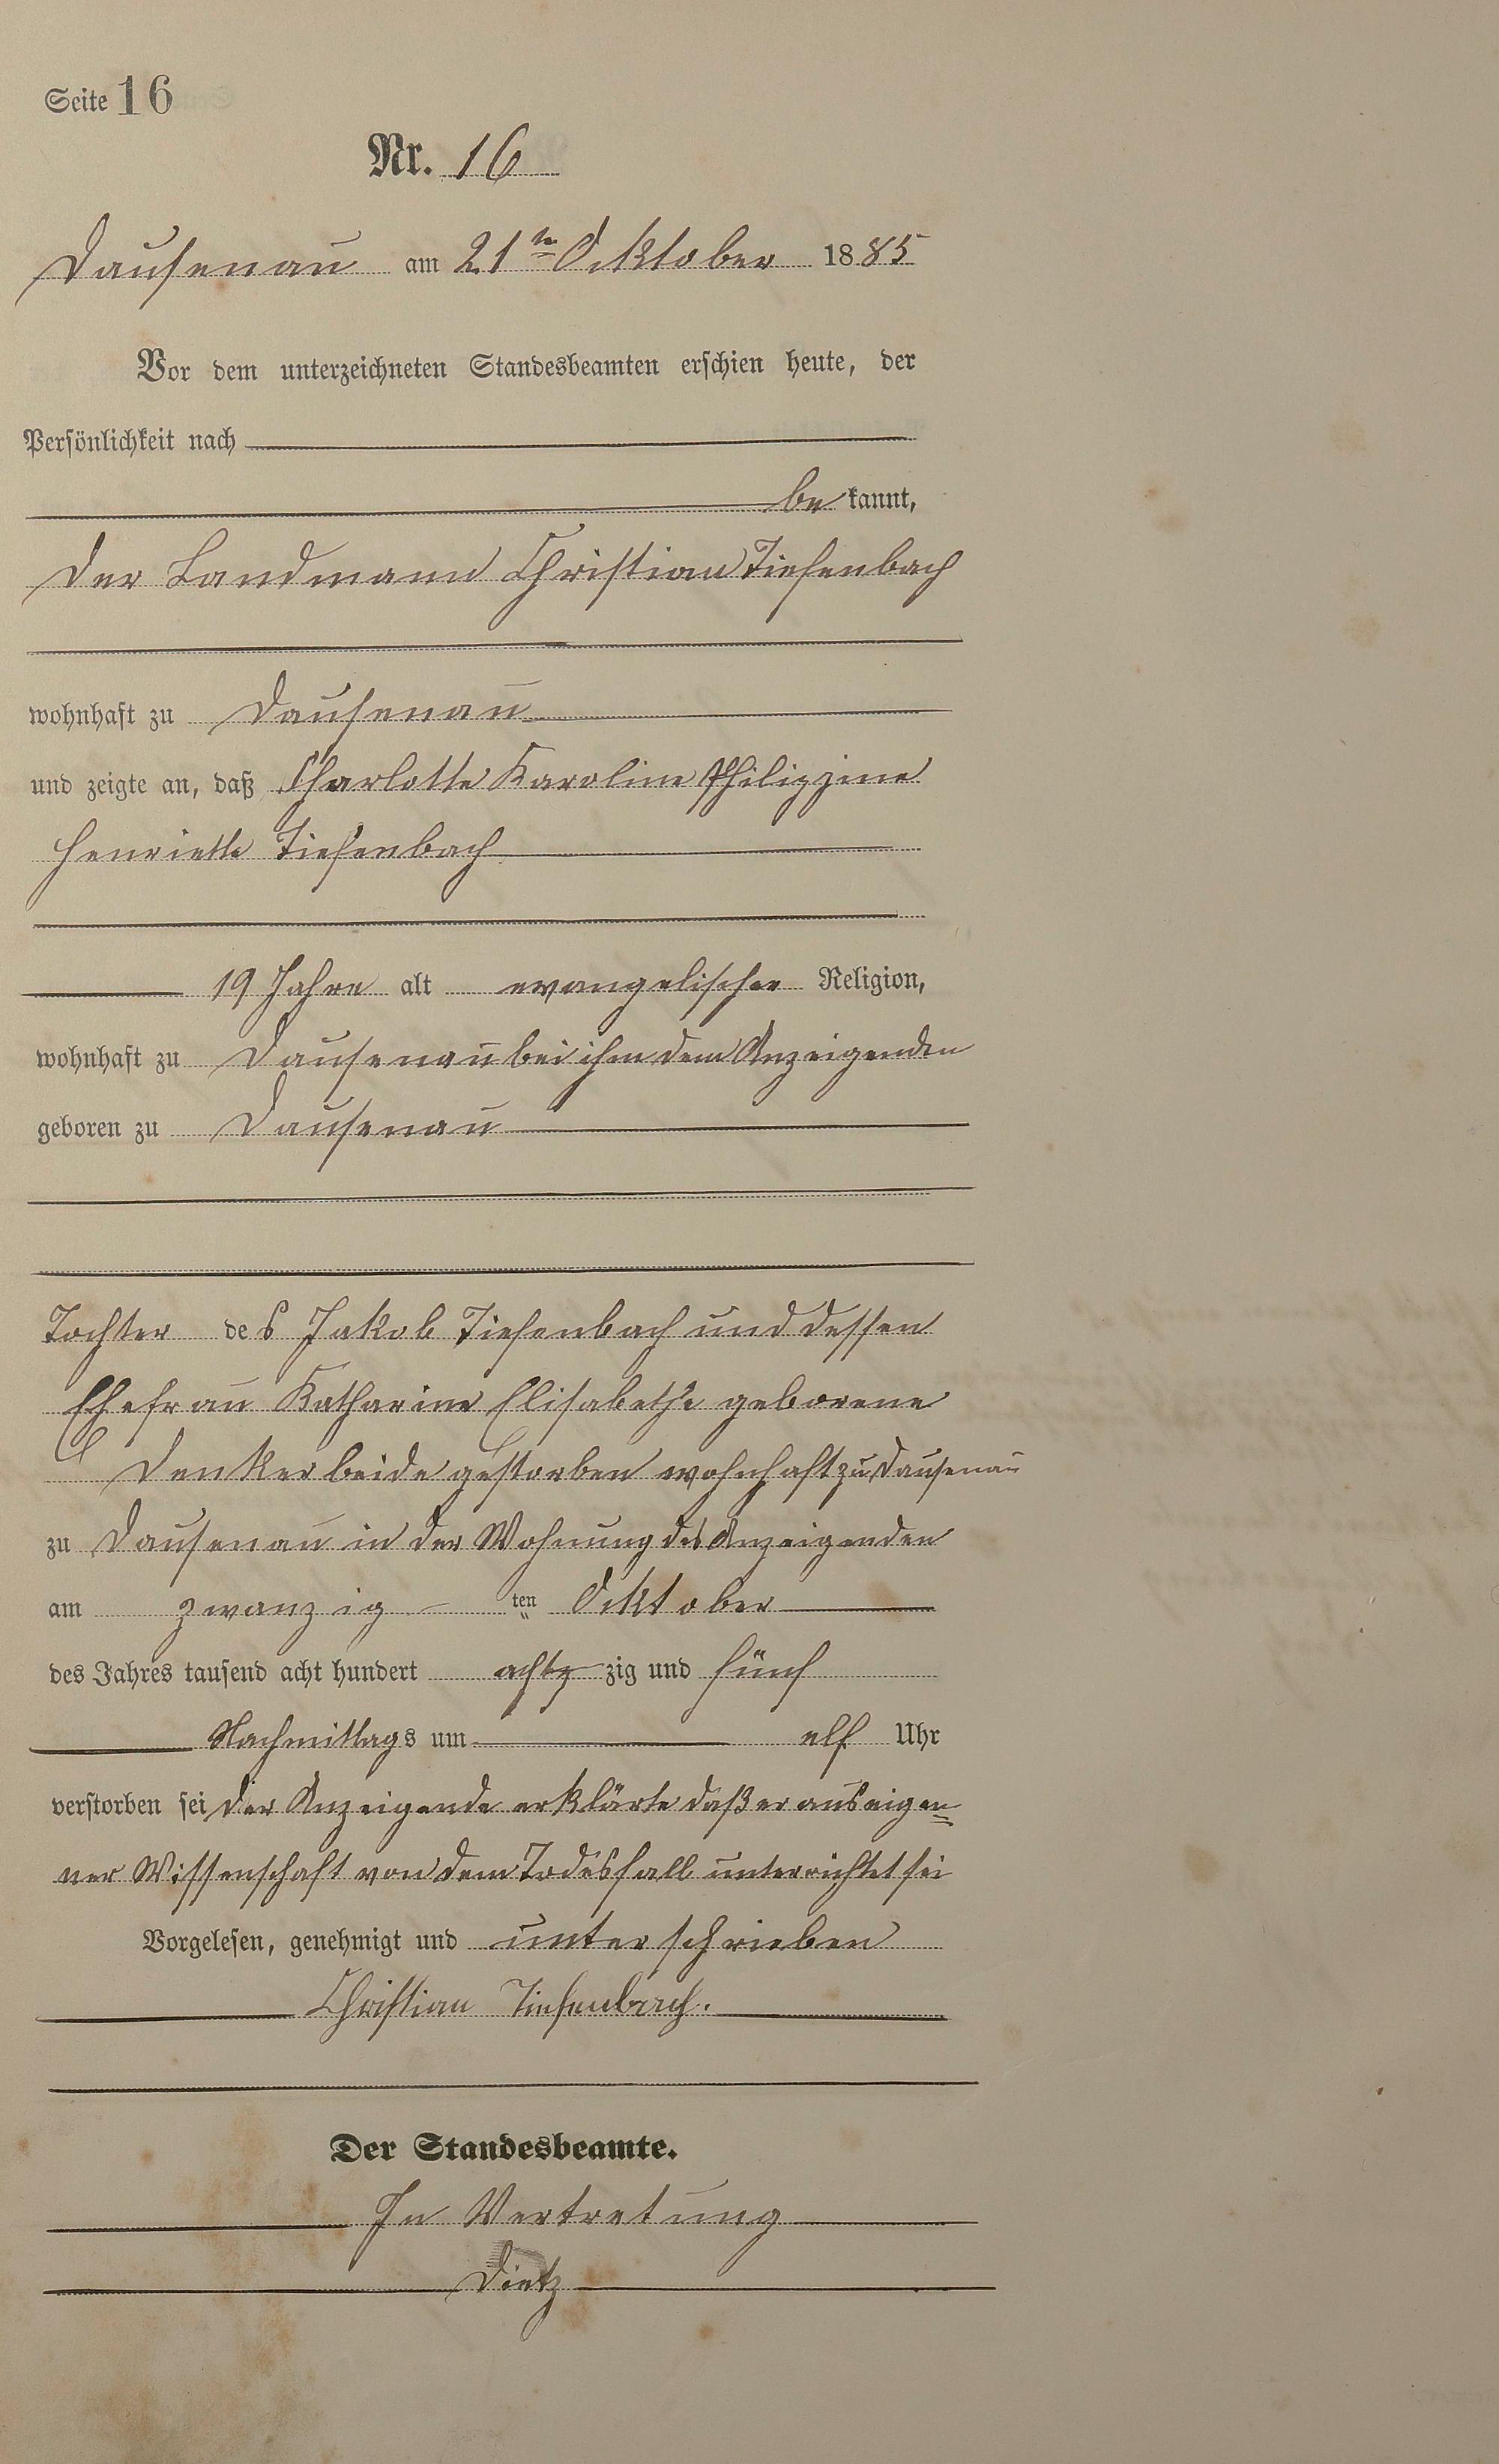 Seite 16
Nr. 16
Dausenau am 21ten Ocktober 1885
Vor dem unterzeichneten Standesbeamten erschien heute, der
Persönlichkeit nach
be kannt,
der Landmann Christian Tiefenbach
wohnhaft zu Dausenau
und zeigte an, daß Charlotte Karoline Philippine
Henriette Tiefenbach
19 Jahre alt evangelischer Religion,
wohnhaft zu Dausenau bei ihm dem Anzeigenden
geboren zu Dausenau
Tochter des Jakob Tiefenbach und dessen
Ehefrau Katharine Elisabethe geborene
Denker beide gestorben wohnhaft zu Dausenau
zu Dausenau in der Wohnung des Anzeigenden
am zwanzig ten Ocktober
des Jahres tausend acht hundert achtz zig und fünf
Nachmittags um elf Uhr
verstorben sei der Anzeigende erklärte daß er aus eigen=
ner Wissenschaft von dem Todesfall unterrichtet sei
Vorgelesen, genehmigt und unterschrieben
Christian Tiefenbach.
Der Standesbeamte.
In Vertretung
Dietz